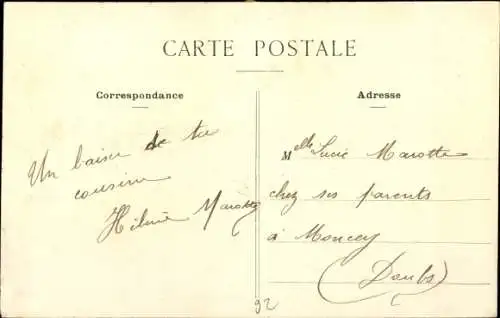 CARTE POSTALE
Correspondance
Un baiser de ta
cousine
Marotte
Adresse
Melle Lucie Marotte
chez ses parents
à Moncey
(Doubs)
92